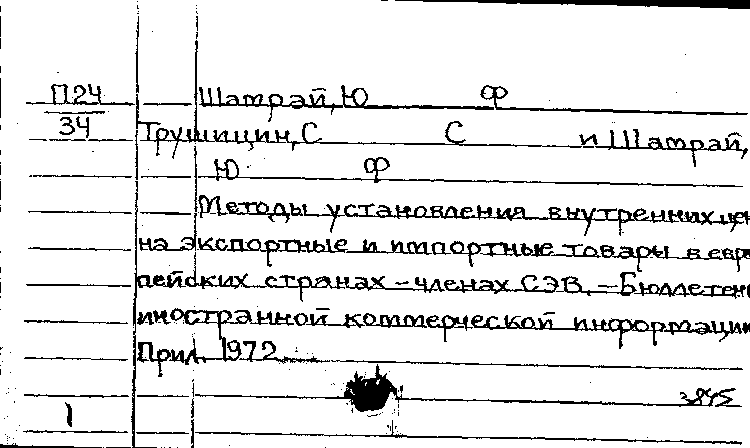 П24 Шатрай, Ю Ф
34 Трушицин, С С и Шатрай,
Ю Ф
Методы установления внутренних цен
на экспортные и импортные товары в евро
пейских странах - членах СЭВ. - Бюллетень
иностранной коммерческой информации
Прил. 1972
3845
1